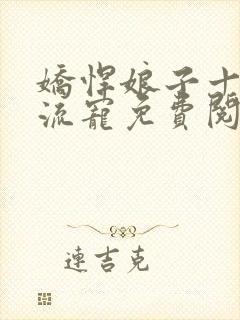 嬌悍娘子十
流寵免費閱
連吉克